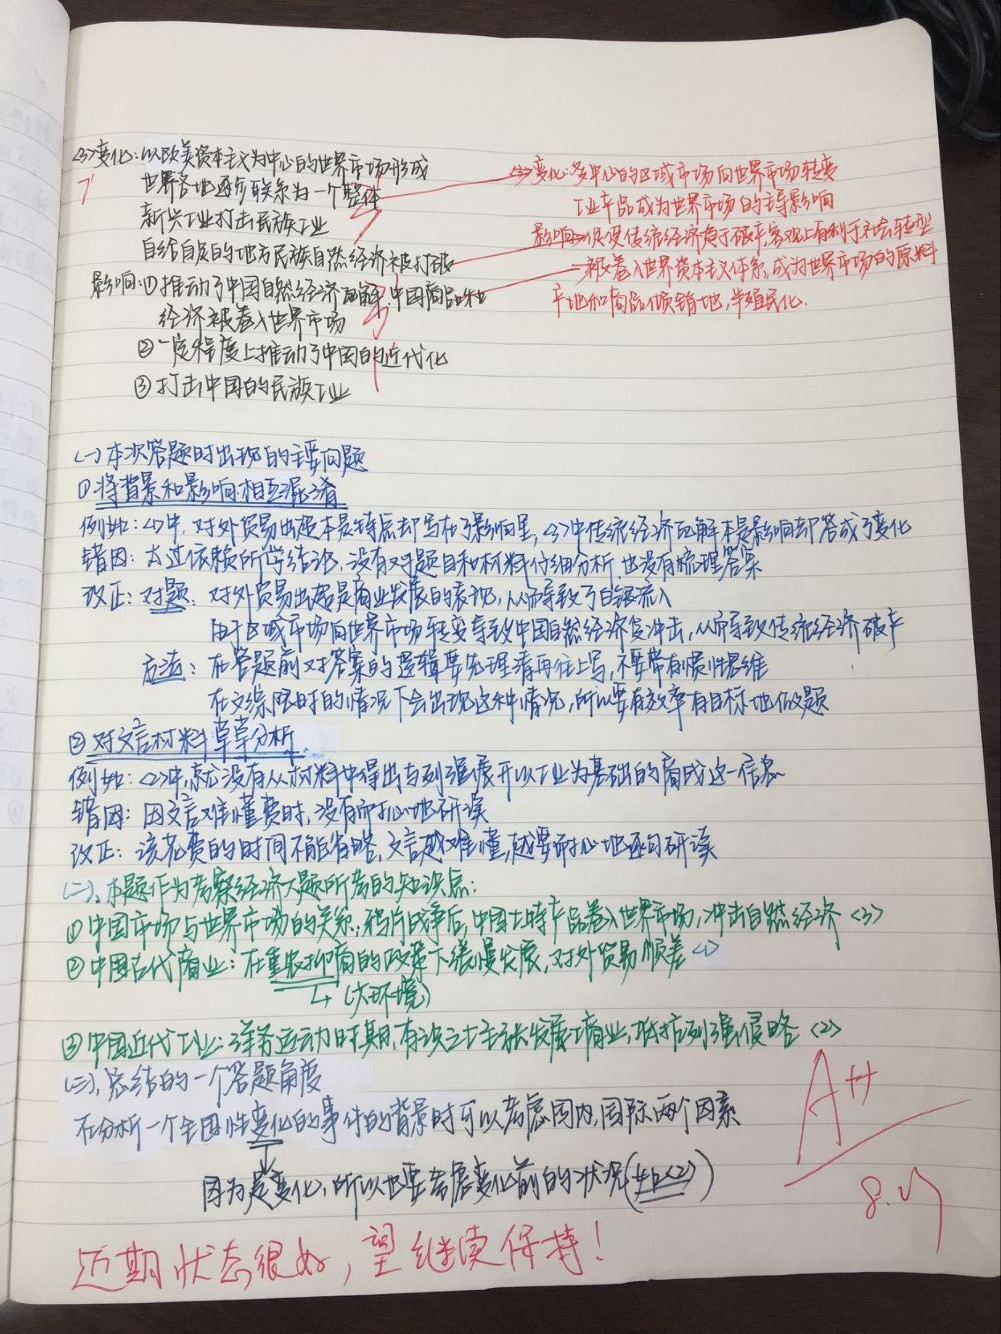 <3>变化:以欧美资本主义为中心的世界市场形成
7'
世界各地逐渐联系为一个整体
新兴工业打击民族工业
自给自足的地方民族自然经济被打破
影响:①推动了中国自然经济瓦解,中国商品和
经济被卷入世界市场
②一定程度上推动了中国的近代化
③打击中国的民族工业
<3>变化:多中心的区域市场向世界市场转变
工业产品成为世界市场的主导影响
影响:促使传统经济趋于破产客观上有利于社会转型
被卷入世界资本主义体系,成为世界市场的原料
产地和商品倾销地,半殖民化.
(一)本次答题时出现的主要问题
①将背景和影响相互混淆
例如:<1>中,对外贸易出超本是特点却写在了影响里,<3>中传统经济瓦解本是影响却答成了变化
错因:太过依赖所学结论,没有对题目和材料仔细分析,也没有梳理答案
改正:对题:对外贸易出超是商业发展的表现,从而导致了白银流入
由于区域市场向世界市场转变导致中国自然经济受冲击,从而导致传统经济破产
方法:在答题前对答案的逻辑要先理清再往上写,不要带有惯性思维
在文综限时的情况下会出现这种情况,所以要有效率有目标地做题
②对文言材料草草分析
例如:<2>中,就没有从材料中得出与列强展开以工业为基础的商战这一信息
错因:因文言难懂费时,没有耐心地研读
改正:该花费的时间不能省略,文言越难懂,越要耐心地逐句研读
(二)、本题作为考察经济大题所考的知识点:
①中国市场与世界市场的关系:鸦片战争后,中国土特产品卷入世界市场,冲击自然经济<3>
②中国古代商业:在重农抑商的政策下缓慢发展,对外贸易顺差<1>
↳(大环境)
③中国近代工业:洋务运动时期,有识之士主张发展工商业,抵抗列强侵略<2>
(三)、总结的一个答题角度
在分析一个全国性变化的事件的背景时可以考虑国内,国际两个因素
因为是变化,所以也要考虑变化前的状况(如<2>)
A++
近期状态很好,望继续保持!